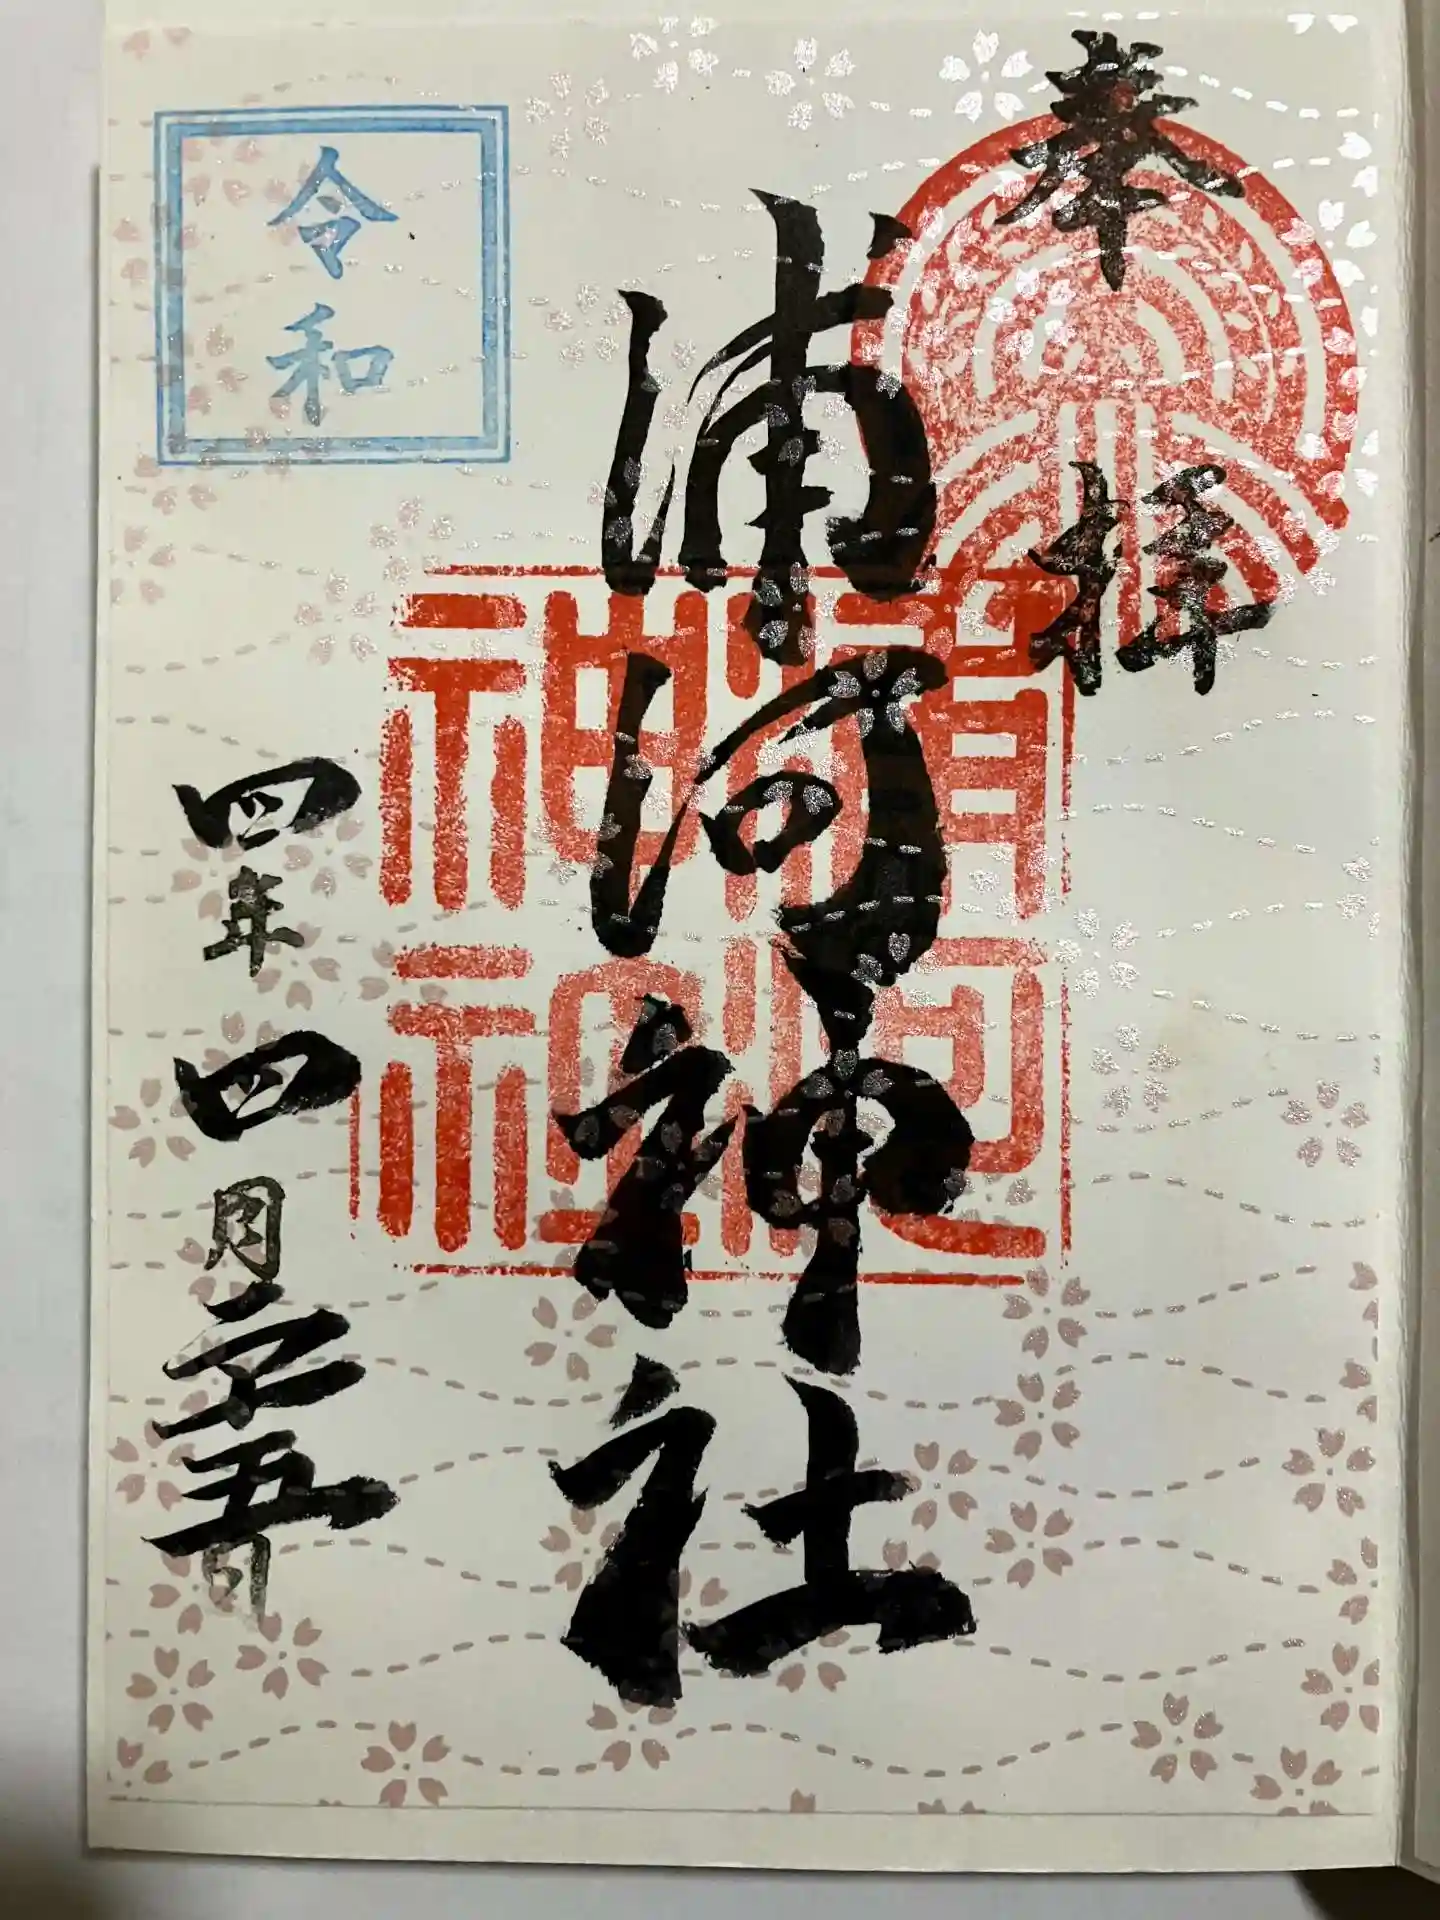 奉拝
浦河神社
浦河
神社
令和
四年四月二十五日